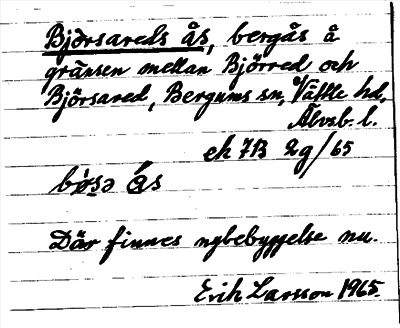 Bjorsareds ås, bergås å
gränsen mellan Björred och
Björsared, Bergums sn, Vättle hd,
Älvsb. l.
ek 7B 2g/65
Där finnes nybebyggelse nu.
Erik Larsson 1965.